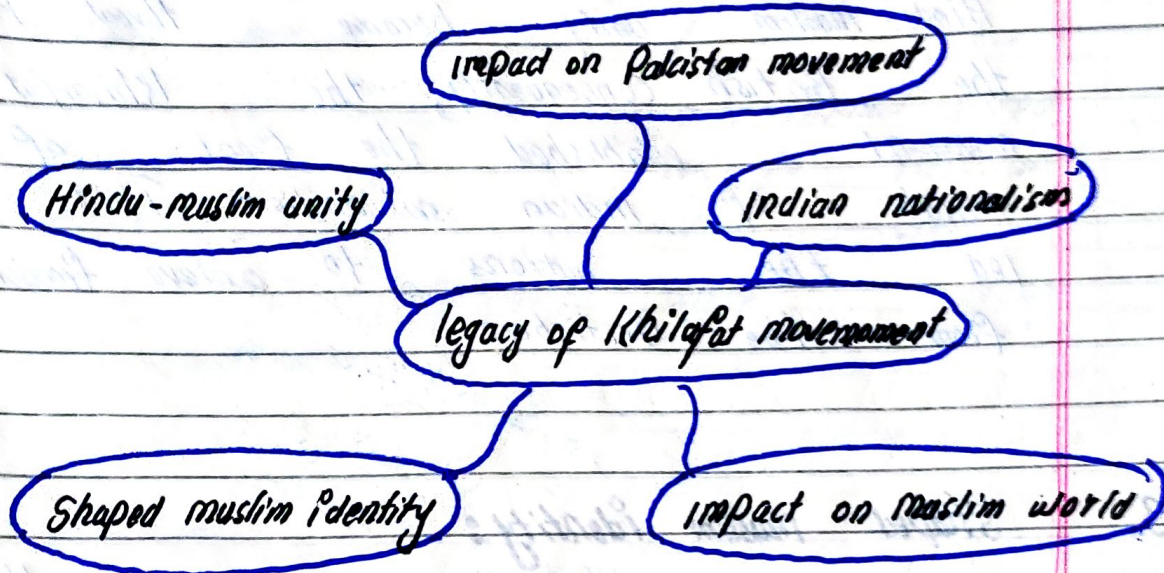 impact on Pakistan movement
Hindu-muslim unity
Indian nationalism
legacy of Khilafat movemement
Shaped muslim identity
impact on Muslim world